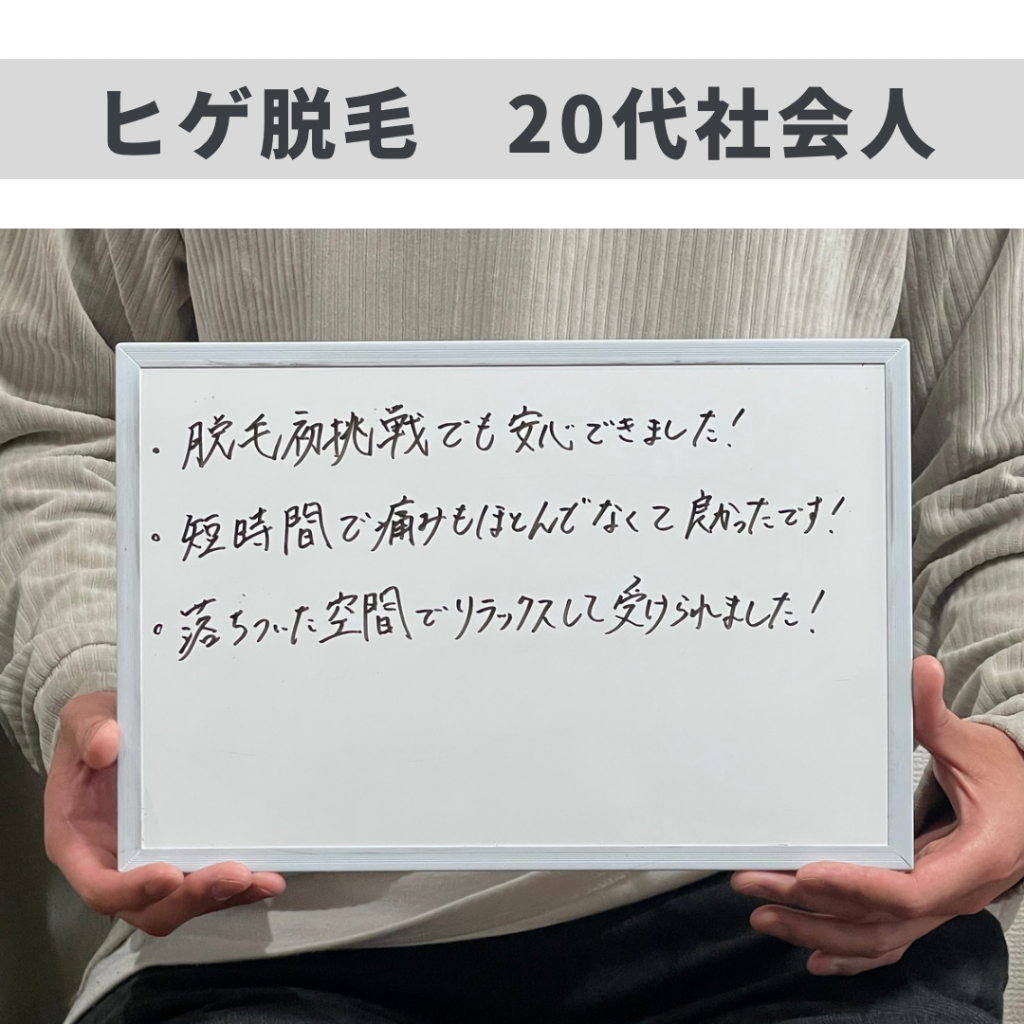 ヒゲ脱毛　20代社会人
・脱毛初挑戦でも安心できました！
・短時間で痛みもほとんどなくて良かったです！
・落ちついた空間でリラックスして受けられました！